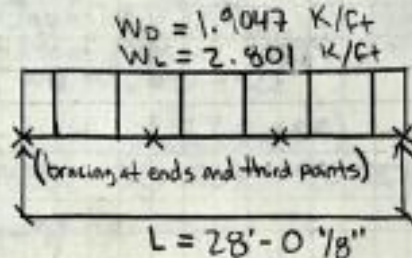 WD = 1.9047 K/ft
WL = 2.801 K/ft
(bracing at ends and third points)
L = 28'-0 1/8"